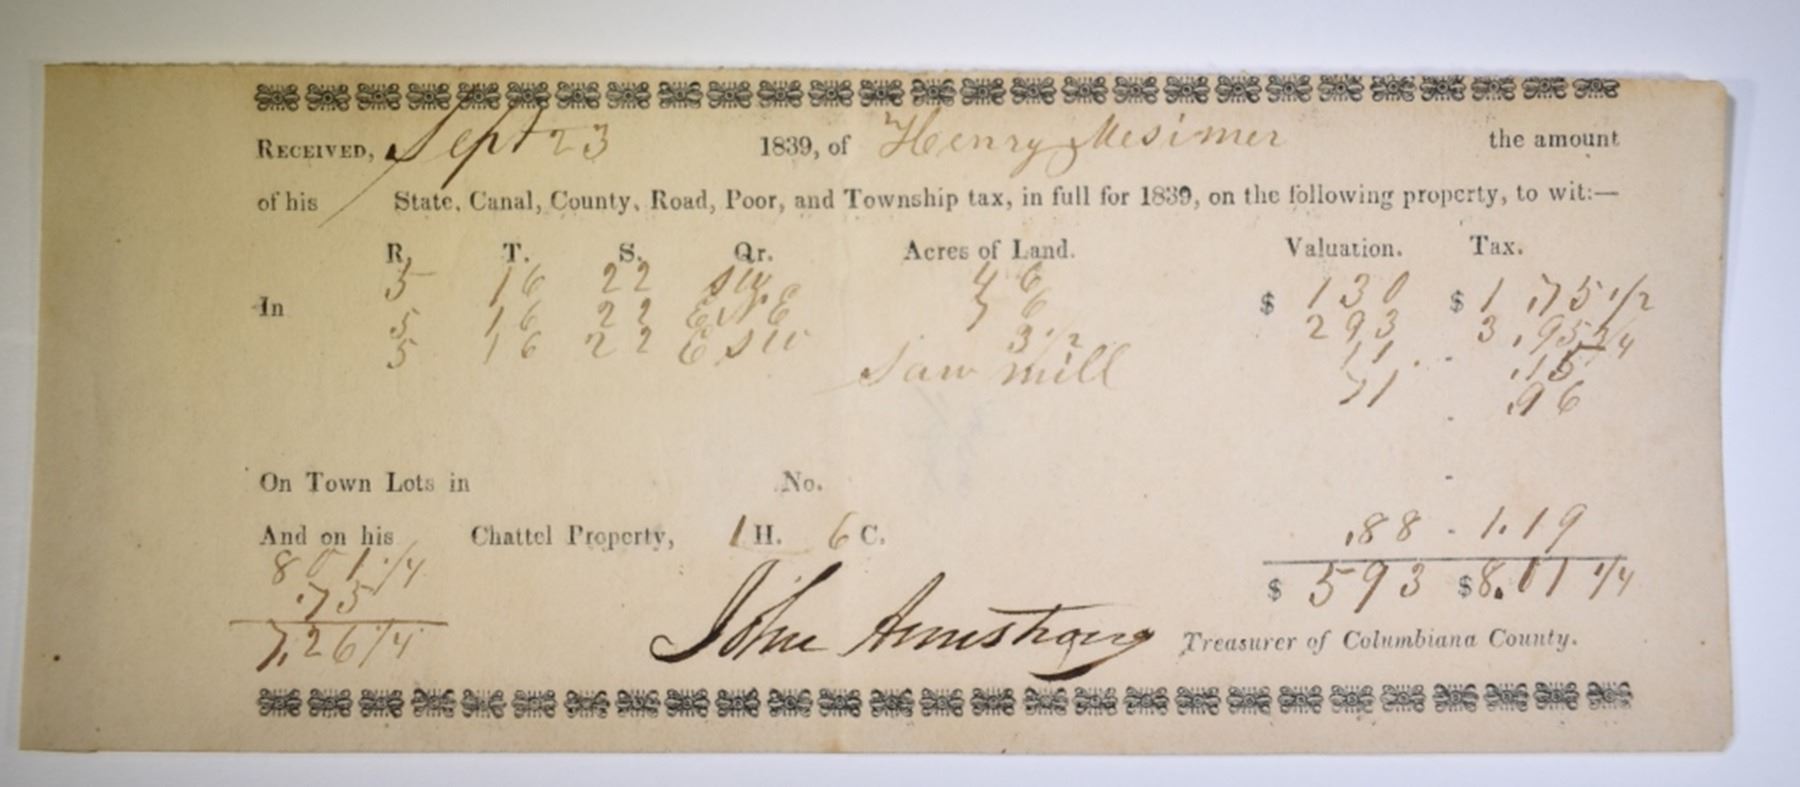 RECEIVED, Sept 23 1839, of Henry Mesimer the amount
of his State, Canal, County, Road, Poor, and Township tax, in full for 1839, on the following property, to wit:—
R. T. S. Qr. Acres of Land. Valuation. Tax.
5 16 22 SW 46 $ 130 $ 1.75 1/2
In 5 16 22 E NE 76 293 3.95
5 16 22 E SW 3 1/2 11 .15
Saw mill 71 .96
On Town Lots in No.
And on his Chattel Property, 1 H. 6 C. .88 - 1.19
801 1/4 $ 593 $8.01 1/4
.75
7.26 1/4
John Armstrong Treasurer of Columbiana County.